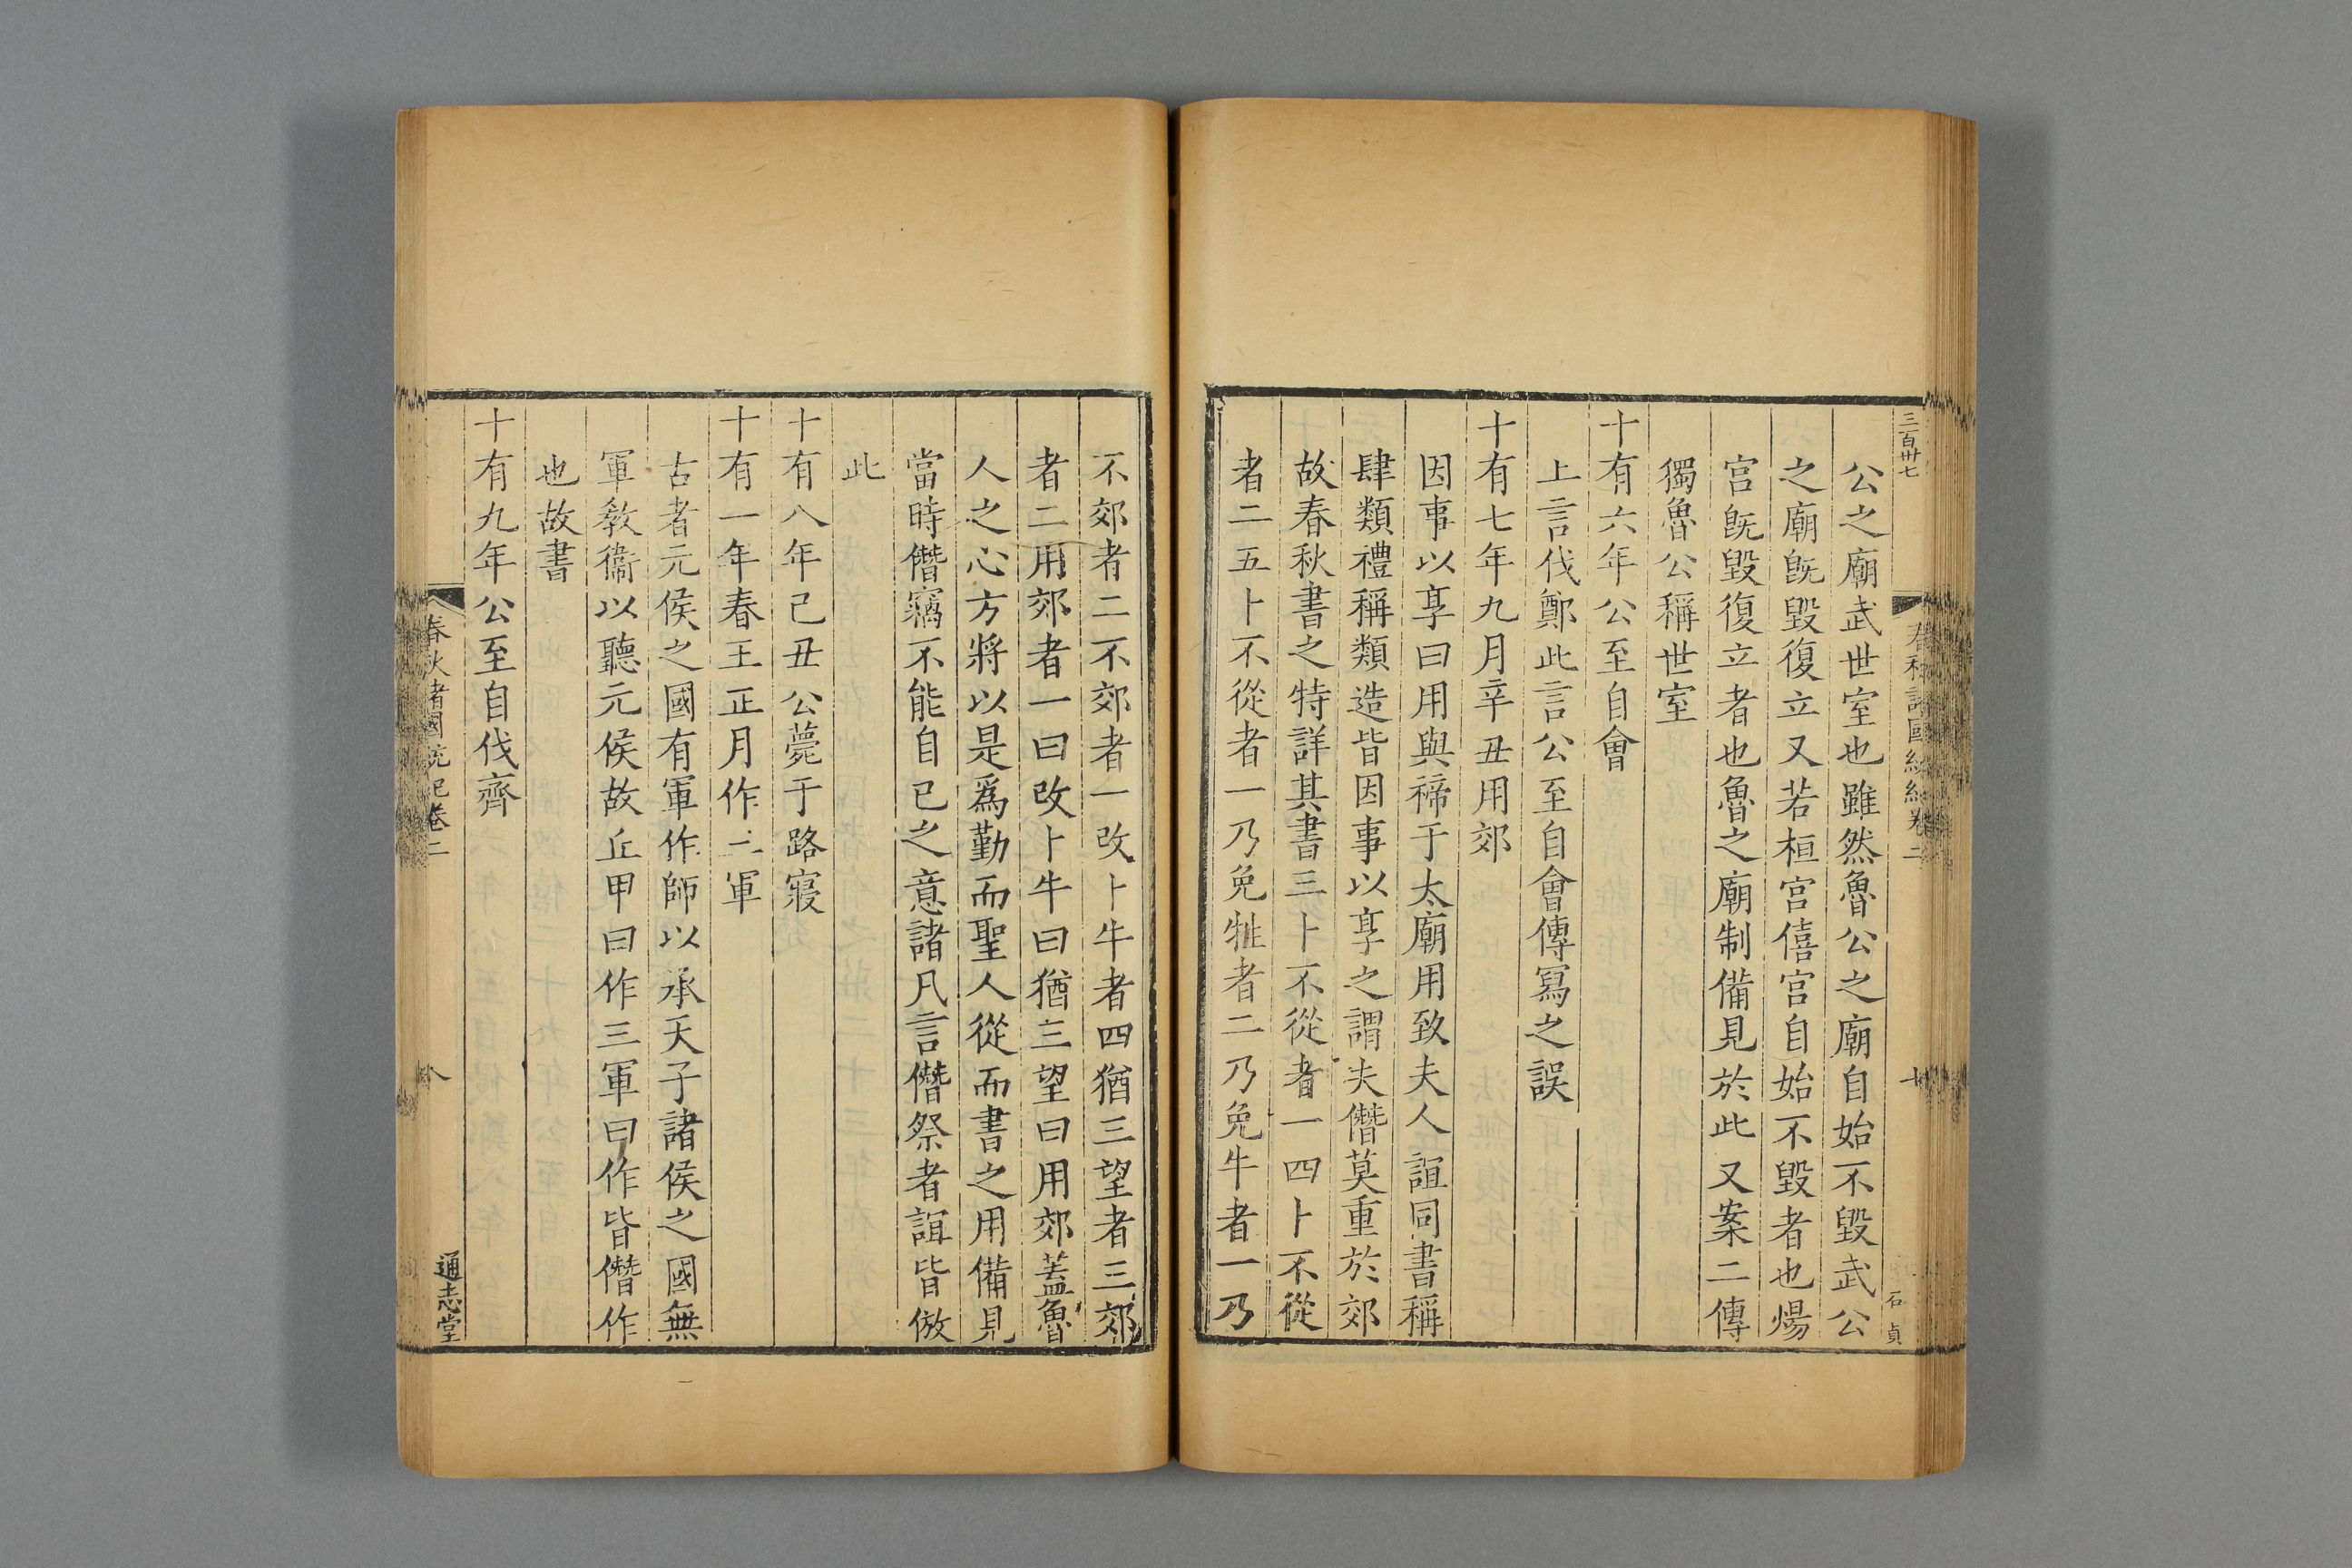 三百卅七
春秋諸國統紀卷二
石貞
公之廟武世室也雖然魯公之廟自始不毀武公
之廟旣毀復立又若桓宮僖宮自始不毀者也煬
宮旣毀復立者也魯之廟制備見於此又案二傳
獨魯公稱世室
十有六年公至自會
上言伐鄭此言公至自會傳寫之誤
十有七年九月辛丑用郊
因事以享曰用與禘于太廟用致夫人誼同書稱
肆類禮稱類造皆因事以享之謂夫僭莫重於郊
故春秋書之特詳其書三卜不從者一四卜不從
者二五卜不從者一乃免牲者二乃免牛者一乃
不郊者二不郊者一改卜牛者四猶三望者三郊
者二用郊者一曰改卜牛曰猶三望曰用郊蓋魯
人之心方將以是爲勤而聖人從而書之用備見
當時僭竊不能自已之意諸凡言僭祭者誼皆倣
此
十有八年己丑公薨于路寢
十有一年春王正月作三軍
古者元侯之國有軍作師以承天子諸侯之國無
軍敎衞以聽元侯故丘甲曰作三軍曰作皆僭作
也故書
十有九年公至自伐齊
春秋諸國統紀卷二
八
通志堂